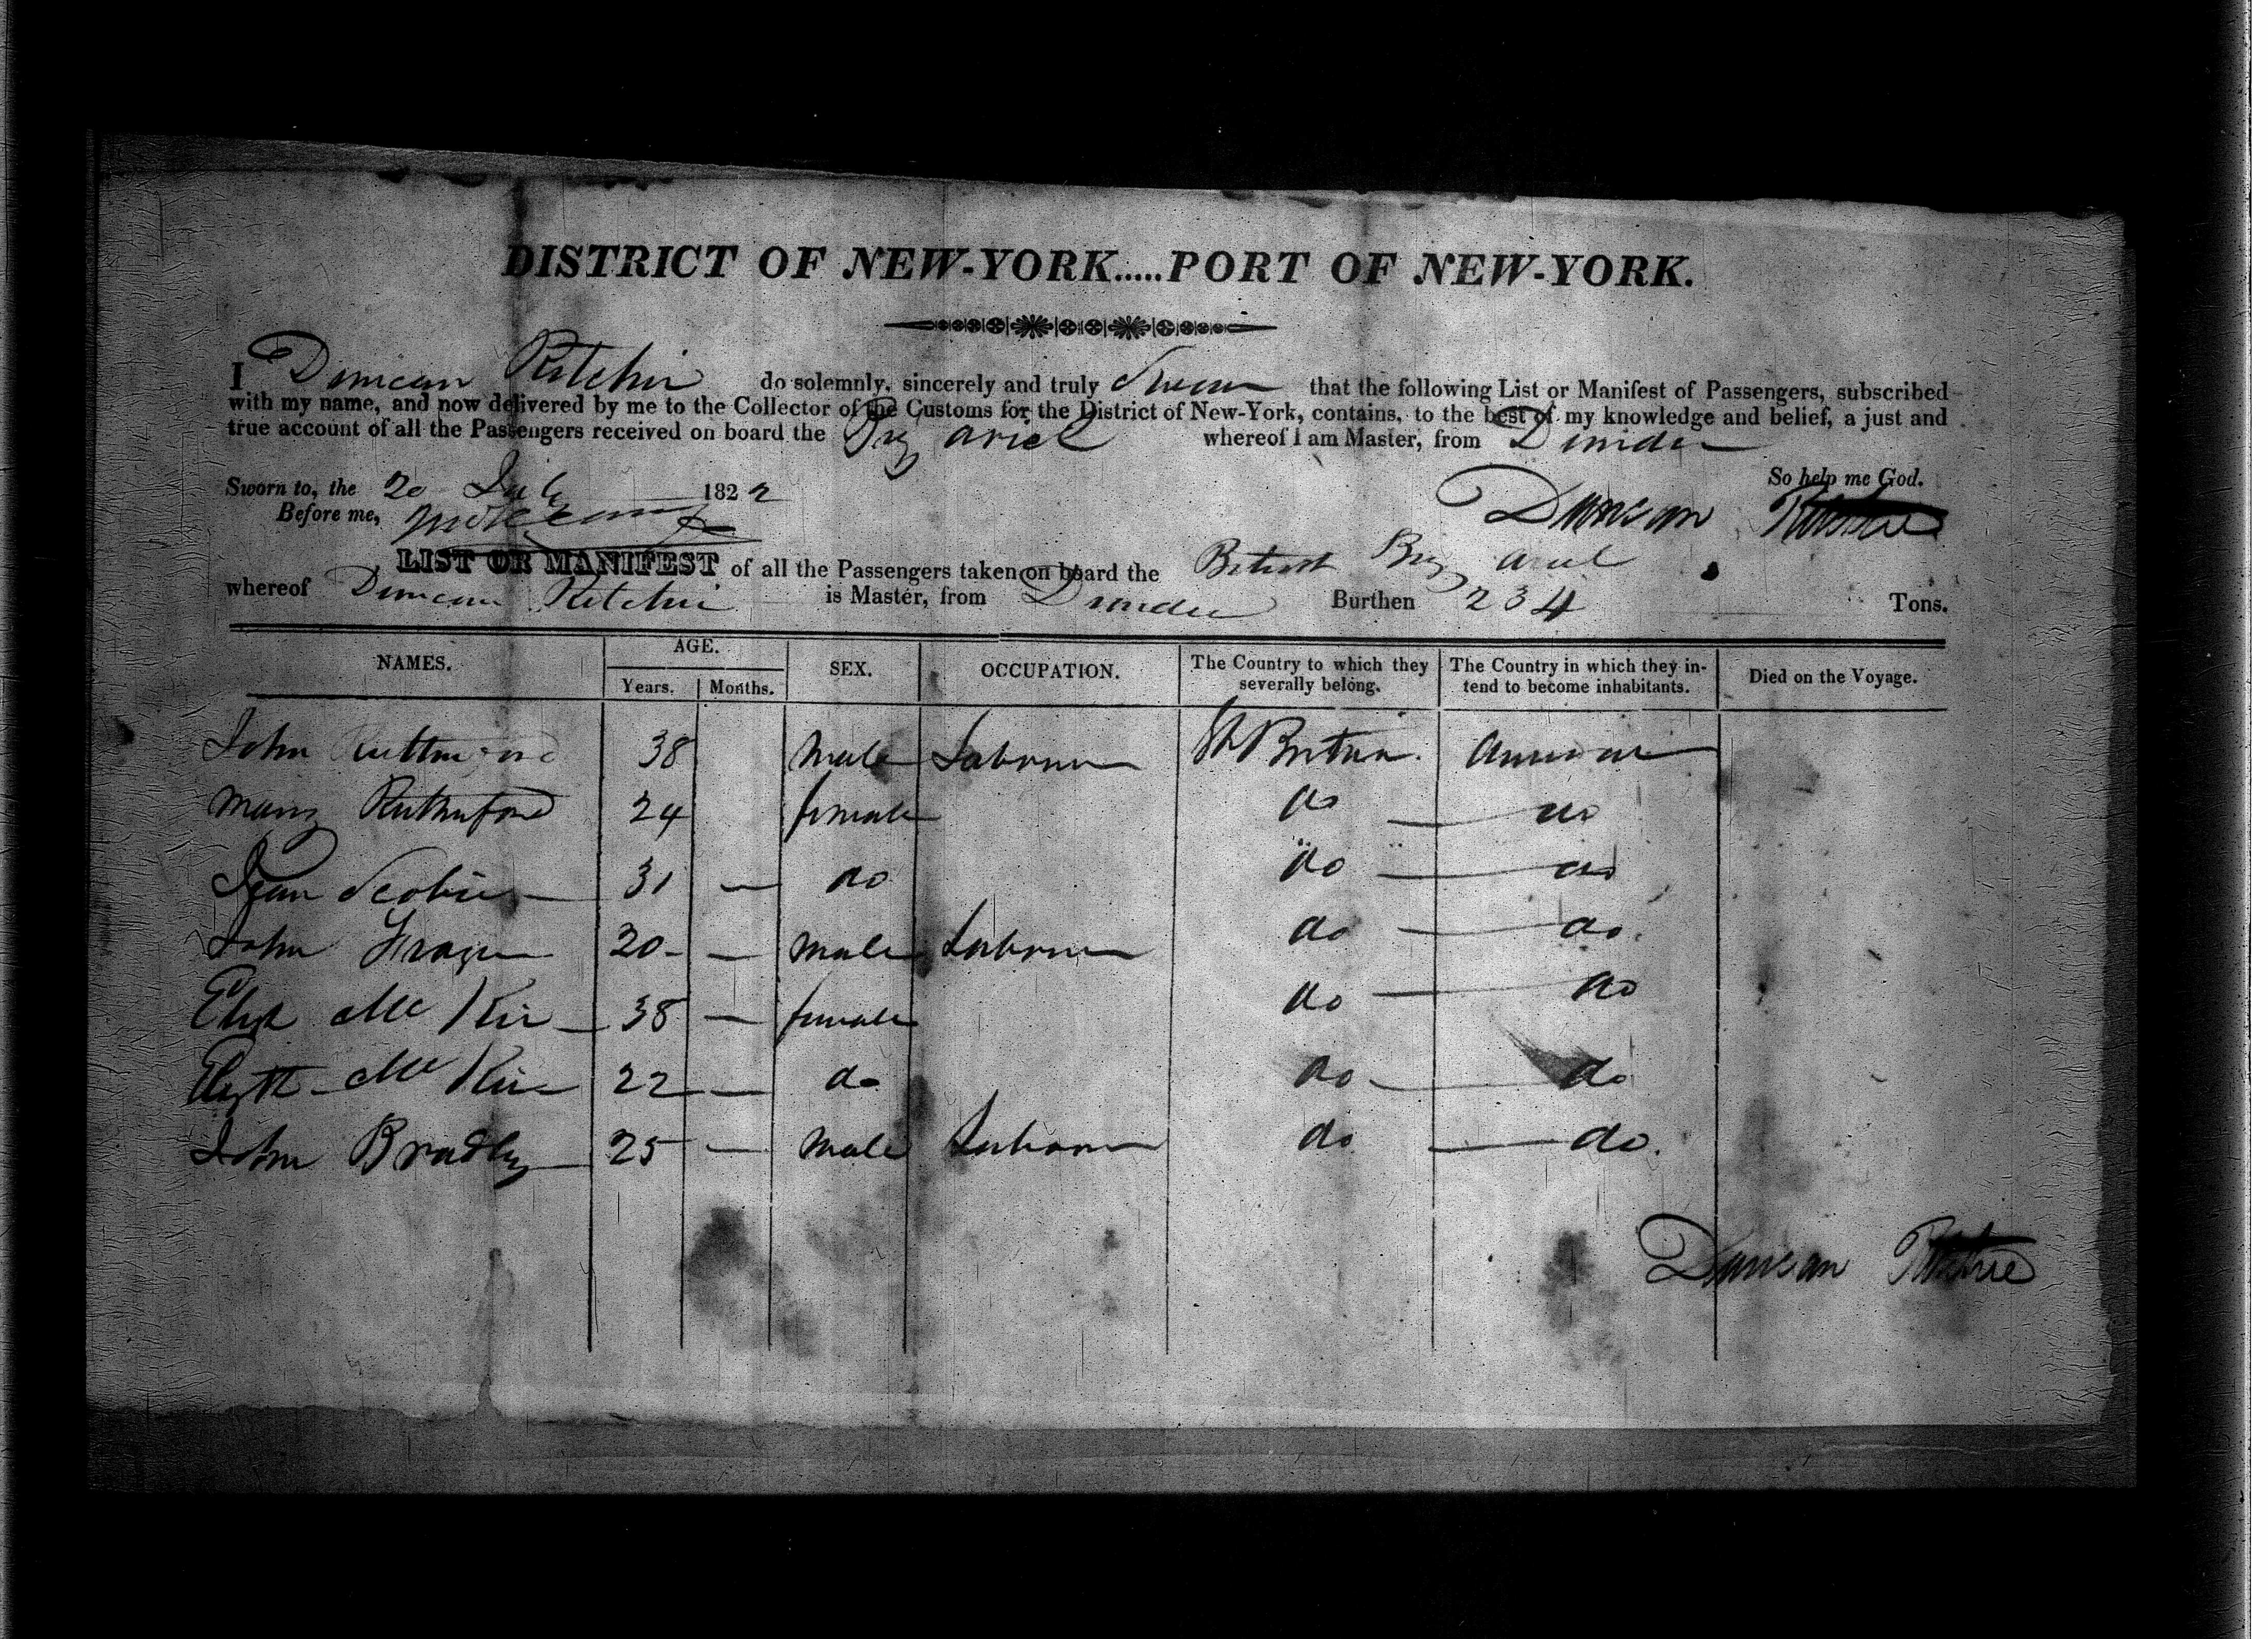 DISTRICT OF NEW-YORK.....PORT OF NEW-YORK.
I Duncan Ritchie do solemnly, sincerely and truly Swear that the following List or Manifest of Passengers, subscribed
with my name, and now delivered by me to the Collector of the Customs for the District of New-York, contains, to the best of my knowledge and belief, a just and
true account of all the Passengers received on board the Brig Ariel whereof I am Master, from Dundee
So help me God.
Sworn to, the 20 July 1822
Before me,
Duncan Ritchie
LIST OR MANIFEST of all the Passengers taken on board the British Brig Ariel
whereof Duncan Ritchie is Master, from Dundee Burthen 234 Tons.
NAMES. AGE. Years. Months. SEX. OCCUPATION. The Country to which they severally belong. The Country in which they intend to become inhabitants. Died on the Voyage.
John 38 male Labourer Gt Britain. America
Mary Rutherford 24 female do — do
Jean Scobie 31 — do do — do
John Frazer 20 — male Labourer do — do.
Eliza Mc Kie 38 — female do — do
Mc Kie 22 — do do — do
John Bradley 25 — male Labourer do — do.
Duncan Ritchie